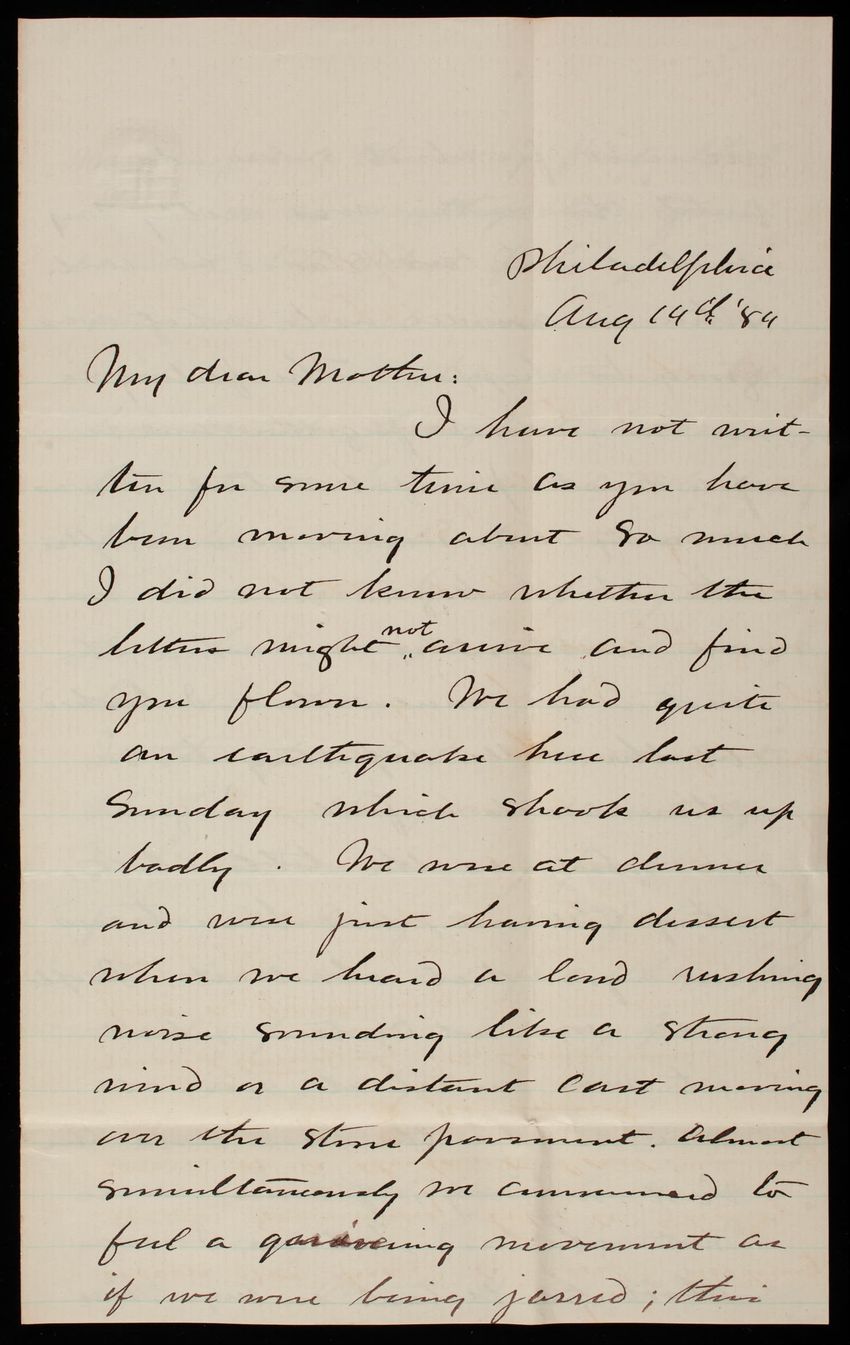 Philadelphia
Aug 14th '84
My dear Mother:
I have not writ-
ten for some time as you have
been moving about so much
I did not know whether the
letters might not arrive and find
you flown. We had quite
an earthquake here last
Sunday which shook us up
badly. We were at dinner
and were just having dessert
when we heard a loud rushing
noise sounding like a strong
wind or a distant cart moving
over the stone pavement. Almost
simultaneously we commenced to
feel a quivering movement as
if we were being jarred; this